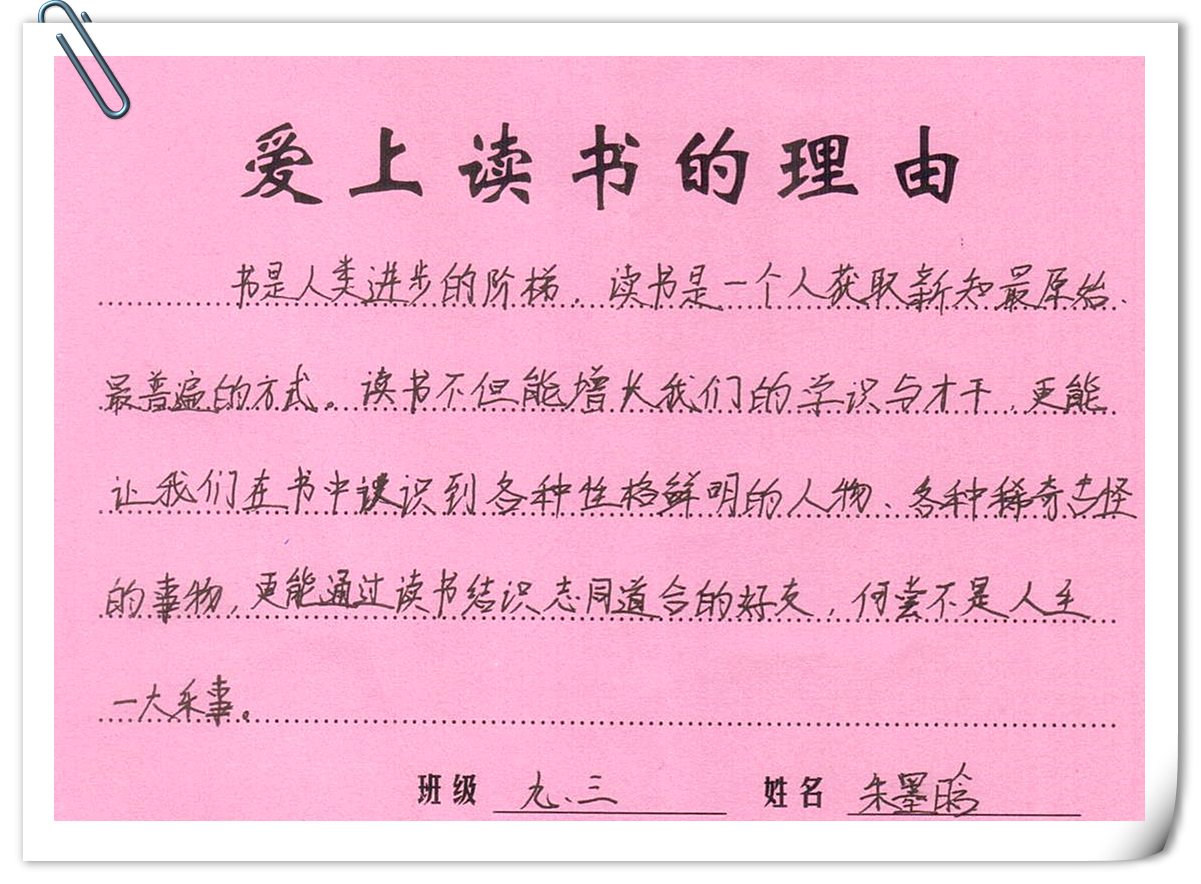 爱上读书的理由
书是人类进步的阶梯，读书是一个人获取新知最原始、
最普遍的方式。读书不但能增长我们的学识与才干，更能
让我们在书中认识到各种性格鲜明的人物、各种稀奇古怪
的事物，更能通过读书结识志同道合的好友，何尝不是人生
一大乐事。
班级 九、三 姓名 朱墨晗